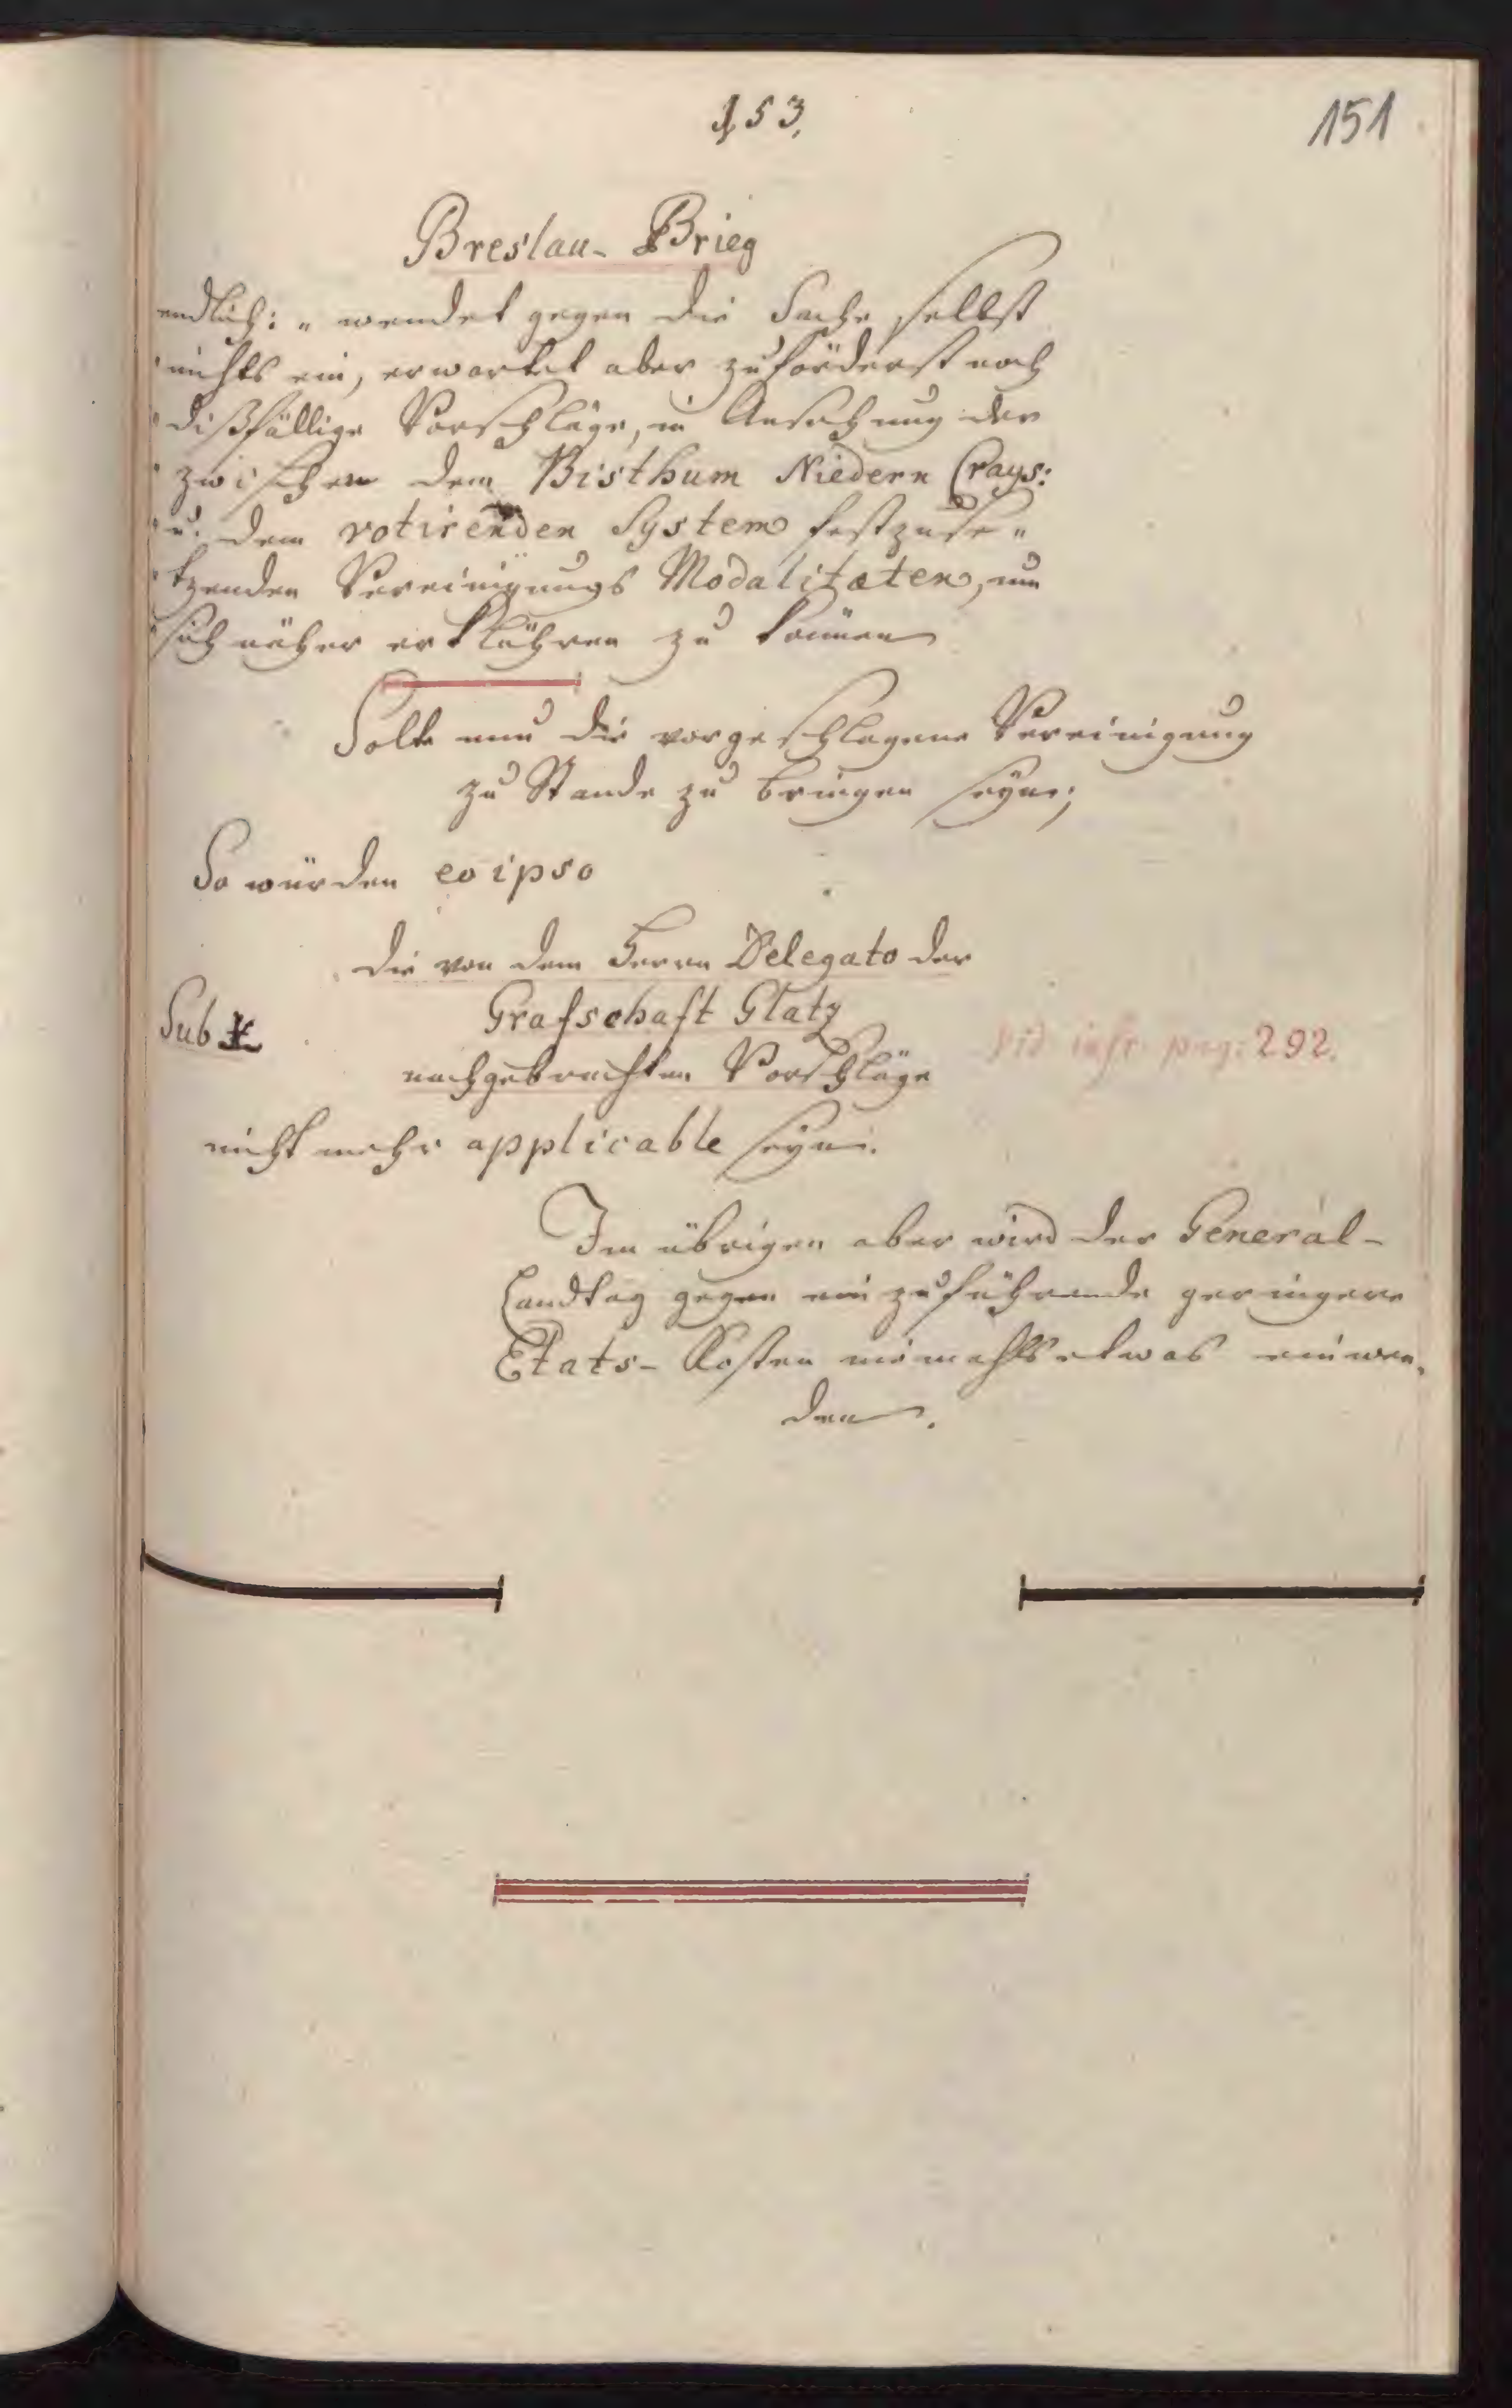 153.
151
Breslau- Brieg
endlich: „ wendet gegen die Sache selbst
„ nichts ein, erwartet aber zuförderst noch
„ dißfällige Vorschläge, in Ansehung der
„ zwischen dem Bisthum Niedern Crays:
„ u. dem rotirenden System festzuse„
„ tzenden Vereinigungs Modalitæten, um
„ sich näher erklähren zu können
Solte nun die vorgeschlagene Vereinigung
zu Stande zu bringen seyn;
So würden eo ipso
die von dem Herrn Delegato der
Grafschaft Glatz
Sub
vid. infr. pag: 292.
nachgebrachten Vorschläge
nicht mehr applicable seyn.
Im übrigen aber wird der General-
Landtag gegen einzuführende geringere
Etats- Kosten niemahls etwas einwen„
den.